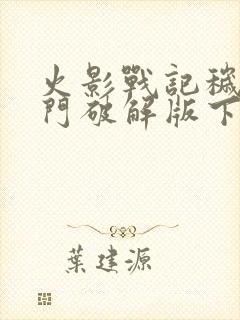 火影戰記穢
門破解版下
葉建源